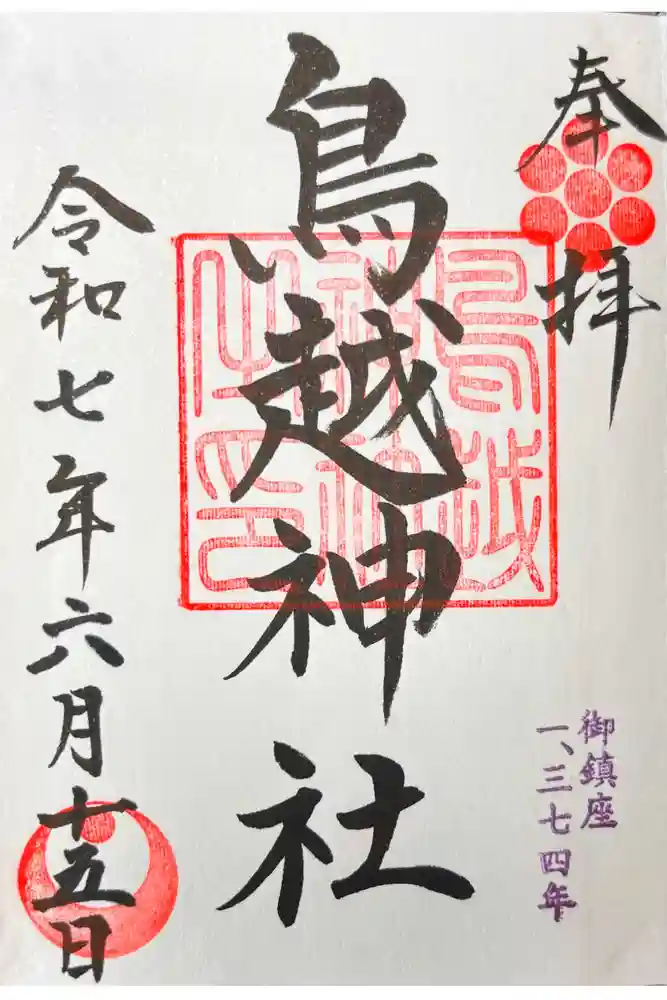 奉拝
鳥越神社
鳥越
神社
之印
御鎮座
一、三七四年
令和七年六月十五日